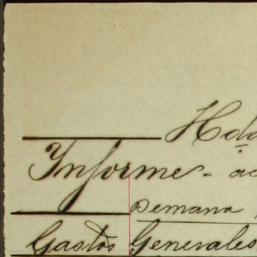 Hda
Informe - ac
Semana
Gastos Generales